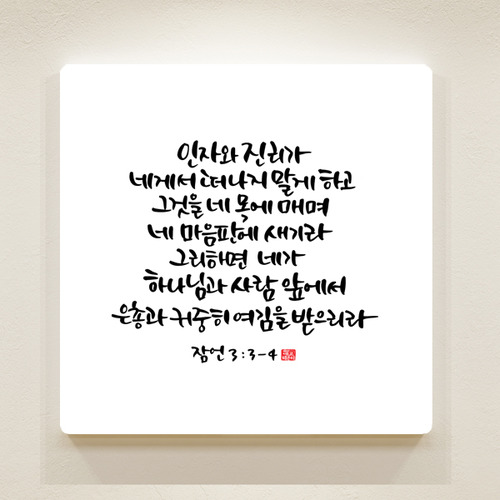 인자와 진리가
네게서 떠나지 말게 하고
그것을 네 목에 매며
네 마음판에 새기라
그리하면 네가
하나님과 사람 앞에서
은총과 귀중히 여김을 받으리라
잠언 3:3-4